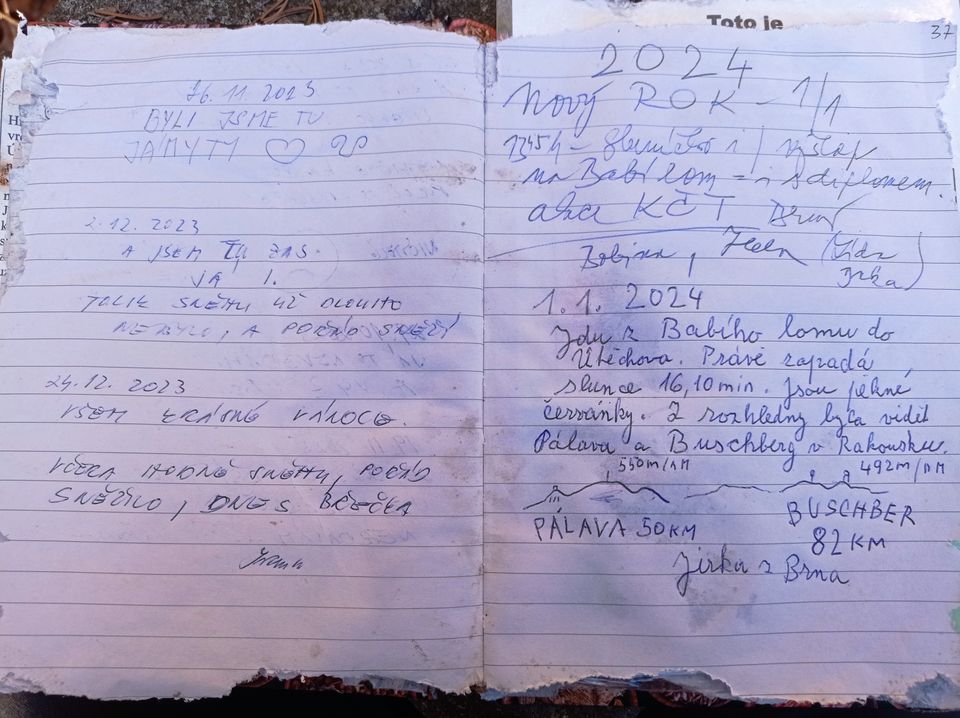 16.11.2023
BYLI JSME TU
JÁ MY TY
2.12.2023
A JSEM TU ZAS
JÁ I.
TOLIK SNĚHU UŽ DLOUHO
NEBYLO, A POŘÁD SNĚŽÍ
24.12.2023
VŠEM KRÁSNÉ VÁNOCE.
VČERA HODNĚ SNĚHU, POŘÁD
SNĚŽILO, DNES BŘEČKA
Ivana
Toto je
37
2024
Nový ROK - 1/1
1345h - sluníčko i výšlap
na Babí lom = i s diplomem!
akce KČT Brno
Jirka
1.1. 2024
Jdu z Babího lomu do
Útěchova. Právě zapadá
slunce 16,10 min. Jsou pěkné
červánky. Z rozhledny byla vidět
Pálava a Buschberg v Rakousku.
550m/nM
492m/nM
PÁLAVA 50 KM
BUSCHBER
82 KM
Jirka z Brna